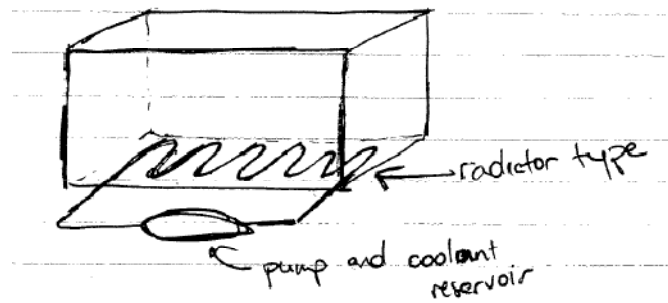 radiator type
pump and coolant
reservoir